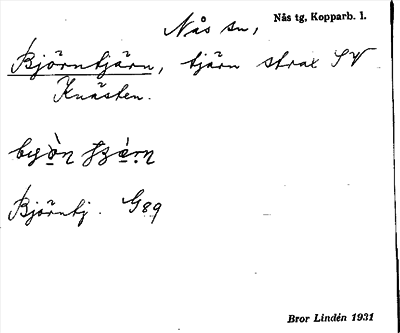 Nås sn, Nås tg, Kopparb. l.
Björntjärn, tjärn strax SV
Knästen.
Björntj. G89
Bror Lindén 1931